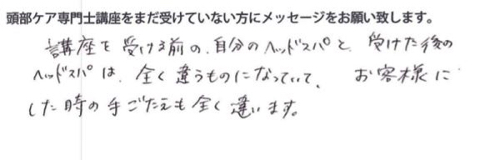 頭部ケア専門士講座をまだ受けていない方にメッセージをお願い致します。
講座を受ける前の、自分のヘッドスパと、受けた後の
ヘッドスパは、全く違うものになっていて、お客様に
した時の手ごたえも全く違います。